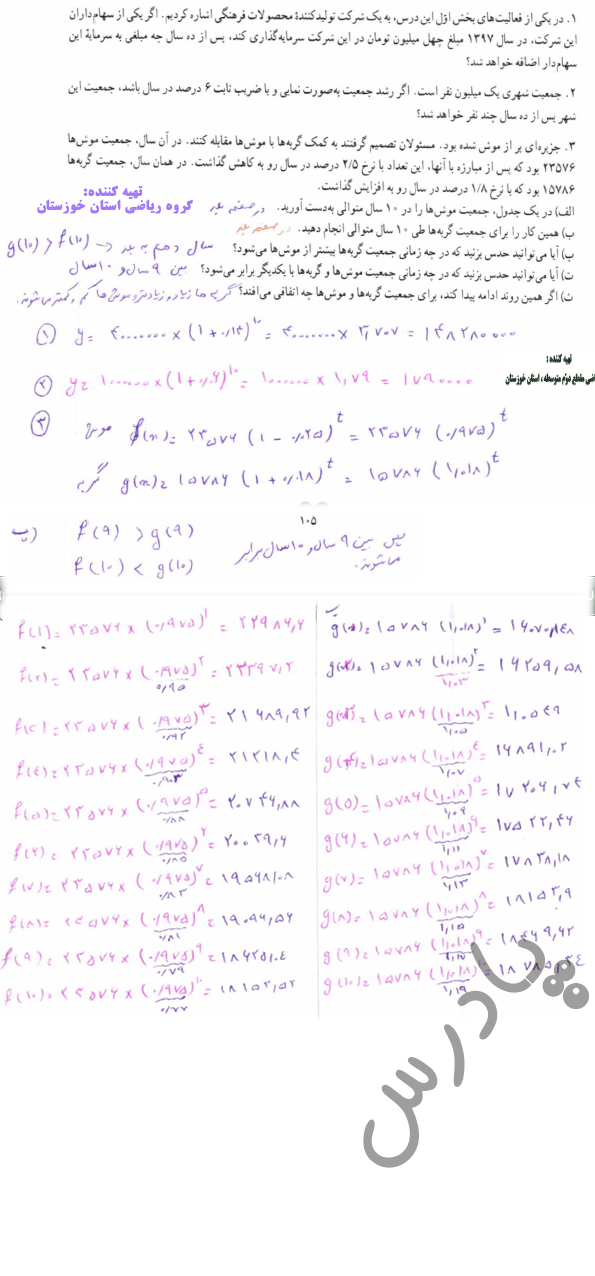 ۱. در یکی از فعالیت‌های بخش اوّل این درس، به یک شرکت تولیدکنندهٔ محصولات فرهنگی اشاره کردیم. اگر یکی از سهام‌داران
این شرکت، در سال ۱۳۹۷ مبلغ چهل میلیون تومان در این شرکت سرمایه‌گذاری کند، پس از ده سال چه مبلغی به سرمایهٔ این
سهام‌دار اضافه خواهد شد؟
۲. جمعیت شهری یک میلیون نفر است. اگر رشد جمعیت به‌صورت نمایی و با ضریب ثابت ۶ درصد در سال باشد، جمعیت این
شهر پس از ده سال چند نفر خواهد شد؟
۳. جزیره‌ای پر از موش شده بود. مسئولان تصمیم گرفتند به کمک گربه‌ها با موش‌ها مقابله کنند. در آن سال، جمعیت موش‌ها
۲۳۵۷۶ بود که پس از مبارزه با آنها، این تعداد با نرخ ۲/۵ درصد در سال رو به کاهش گذاشت. در همان سال، جمعیت گربه‌ها
۱۵۷۸۶ بود که با نرخ ۱/۸ درصد در سال رو به افزایش گذاشت.
تهیه کننده:
گروه ریاضی استان خوزستان
الف) در یک جدول، جمعیت موش‌ها را در ۱۰ سال متوالی به‌دست آورید. در صفحه بعد
ب) همین کار را برای جمعیت گربه‌ها طی ۱۰ سال متوالی انجام دهید. در صفحه بعد
پ) آیا می‌توانید حدس بزنید که در چه زمانی جمعیت گربه‌ها بیشتر از موش‌ها می‌شود؟ سال دهم به بعد → g(10) > f(10)
ت) آیا می‌توانید حدس بزنید که در چه زمانی جمعیت موش‌ها و گربه‌ها با یکدیگر برابر می‌شود؟ بین ۹ سال و ۱۰ سال
ث) اگر همین روند ادامه پیدا کند، برای جمعیت گربه‌ها و موش‌ها چه اتفاقی می‌افتد؟ گربه ها زیاد و زیادتر و موش ها کم و کمتر می‌شوند.
① y = ۴۰۰۰۰۰۰۰ × (۱ + ۰/۱۴)^۱۰ = ۴۰۰۰۰۰۰۰ × ۳,۷۰۷ = ۱۴۸۲۸۰۰۰۰
تهیه کننده :
ریاضی مقطع دوّم متوسطه ، استان خوزستان
② y = ۱۰۰۰۰۰۰ × (۱ + ۰/۰۶)^۱۰ = ۱۰۰۰۰۰۰ × ۱,۷۹ = ۱۷۹۰۰۰۰
③ موش f(n) = ۲۳۵۷۶ (۱ - ۰/۰۲۵)^t = ۲۳۵۷۶ (۰/۹۷۵)^t
گربه g(n) = ۱۵۷۸۶ (۱ + ۰/۰۱۸)^t = ۱۵۷۸۶ (۱,۰۱۸)^t
۱۰۵
پ) f(۹) > g(۹)
f(۱۰) < g(۱۰)
پس بین ۹ سال و ۱۰ سال برابر
می‌شوند.
f(۱) = ۲۳۵۷۶ × (۰/۹۷۵)^۱ = ۲۲۹۸۶,۶
f(۲) = ۲۳۵۷۶ × (۰/۹۷۵)^۲ = ۲۲۳۹۷,۲
۰/۹۵
f(۳) = ۲۳۵۷۶ × (۰/۹۷۵)^۳ = ۲۱۶۸۹,۹۲
۰/۹۲
f(۴) = ۲۳۵۷۶ × (۰/۹۷۵)^۴ = ۲۱۲۱۸,۴
۰/۹۰۳
f(۵) = ۲۳۵۷۶ × (۰/۹۷۵)^۵ = ۲۰۷۴۶,۸۸
۰/۸۸
f(۶) = ۲۳۵۷۶ × (۰/۹۷۵)^۶ = ۲۰۰۳۹,۶
۰/۸۵
f(۷) = ۲۳۵۷۶ × (۰/۹۷۵)^۷ = ۱۹۵۶۸/۰۸
۰/۸۳
f(۸) = ۲۳۵۷۶ × (۰/۹۷۵)^۸ = ۱۹۰۹۶,۵۶
۰/۸۱
f(۹) = ۲۳۵۷۶ × (۰/۹۷۵)^۹ = ۱۸۶۲۵,۰۴
۰/۷۹
f(۱۰) = ۲۳۵۷۶ × (۰/۹۷۵)^۱۰ = ۱۸۱۵۳,۵۲
۰/۷۷
ب
g(۱) = ۱۵۷۸۶ (۱,۰۱۸)^۱ = ۱۶۰۷۰,۱۴۸
g(۲) = ۱۵۷۸۶ (۱,۰۱۸)^۲ = ۱۶۲۵۹,۵۸
۱,۰۳
g(۳) = ۱۵۷۸۶ (۱,۰۱۸)^۳ = ۱,۰۵۴۹
۱,۰۵
g(۴) = ۱۵۷۸۶ (۱,۰۱۸)^۴ = ۱۶۸۹۱,۰۲
۱,۰۷
g(۵) = ۱۵۷۸۶ (۱,۰۱۸)^۵ = ۱۷۲۰۶,۷۴
۱,۰۹
g(۶) = ۱۵۷۸۶ (۱,۰۱۸)^۶ = ۱۷۵۲۲,۴۶
۱,۱۱
g(۷) = ۱۵۷۸۶ (۱,۰۱۸)^۷ = ۱۷۸۳۸,۱۸
۱,۱۳
g(۸) = ۱۵۷۸۶ (۱,۰۱۸)^۸ = ۱۸۱۵۳,۹
۱,۱۵
g(۹) = ۱۵۷۸۶ (۱,۰۱۸)^۹ = ۱۸۴۶۹,۶۲
۱,۱۷
g(۱۰) = ۱۵۷۸۶ (۱,۰۱۸)^۱۰ = ۱۸۷۸۵,۳۴
۱,۱۹
پادرس